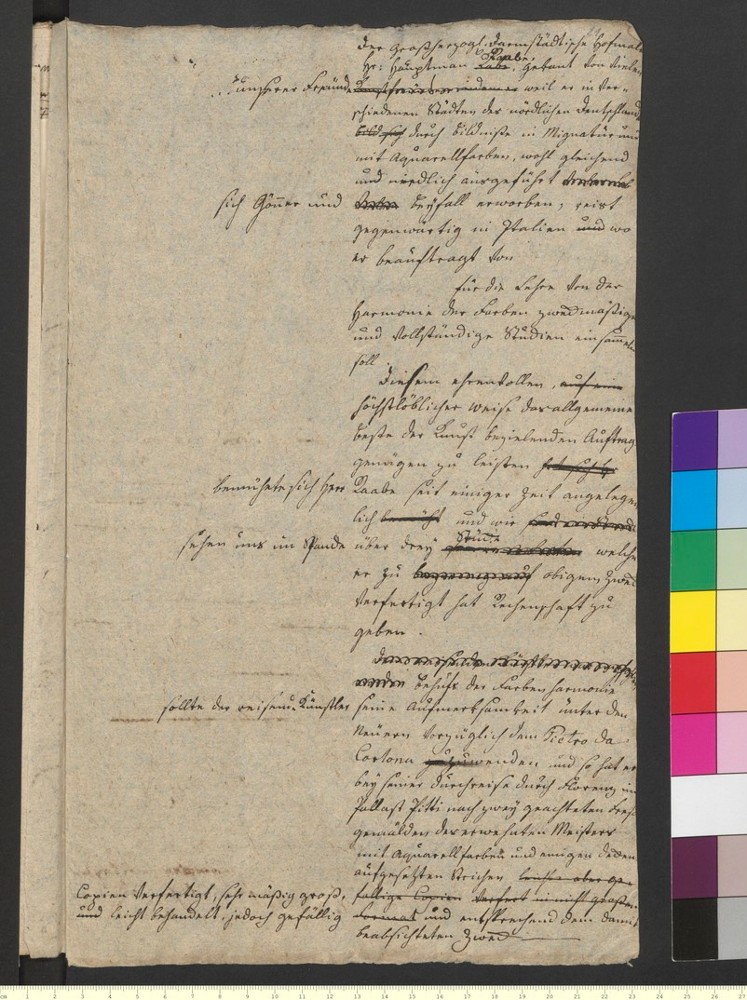 Der Großherzogl. Darmstädtische Hofmaler
Hr: Hauptman Raabe, bekant von vielen
unserer Freunde weil er in ver-
schiedenen Städten des nördlichen Deutschland
durch Bildniße in Mignatür und
mit Aquarellfarben, wohl gleichend
und niedlich ausgeführt
sich Gönner und Beyfall erworben, reist
gegenwärtig in Italien und wo
er beauftragt von
für die Lehre von der
Harmonie der Farben zweckmäßige
und vollständige Studien einsammeln
soll.
Diesem ehrenvollen, auf eine
höchstlöblicher weise das allgemeine
beste der Kunst bezielenden Auftrag
genügen zu leisten hat sich
bemühete sich Herr Raabe seit einiger Zeit angelegen
lich bemüht und wir
sehen uns im Stande über drey Stücke welche
er zu obigem Zweck
verfertigt hat Rechenschaft zu
geben.
Behufs der Farbenharmonie
sollte der reisende Künstler seine Aufmerksamkeit unter den
Neuern vorzüglich dem Pietro da
Cortona zuwenden und so hat er
bey seiner Durchreise durch Florenz im
Pallast Pitti nach zwey geachteten
gemälden des erwehnten Meisters
mit Aquarellfarben und einigen
aufgesetzten Strichen leichte aber ge-
fällige Copien
Copien verfertigt, sehr mäßig groß,
und leicht behandelt, jedoch gefällig
und entsprechend dem damit
beabsichteten Zweck